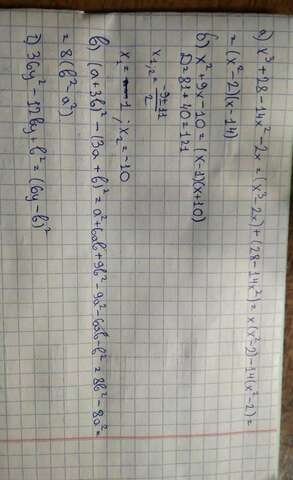 а) x³+28-14x²-2x = (x³-2x)+(28-14x²) = x(x²-2)-14(x²-2) =
= (x²-2)(x-14)
б) x²+9x-10 = (x-1)(x+10)
D=81+40=121
x₁,₂ = (-9±11)/2
x₁=1; x₂=-10
в) (a+3b)²-(3a+b)² = a²+6ab+9b²-9a²-6ab-b² = 8b²-8a² =
= 8(b²-a²)
г) 36y²-12by+b² = (6y-b)²